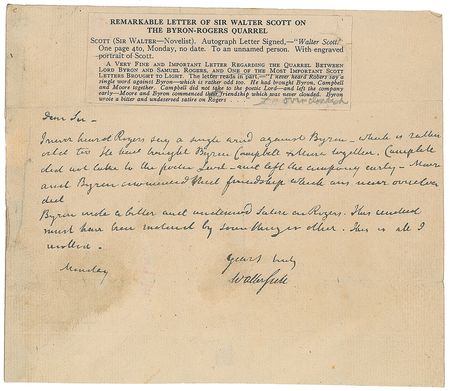 REMARKABLE LETTER OF SIR WALTER SCOTT ON
THE BYRON-ROGERS QUARREL
SCOTT (SIR WALTER—Novelist). Autograph Letter Signed,—"Walter Scott."
One page 4to, Monday, no date. To an unnamed person. With engraved
portrait of Scott.
A VERY FINE AND IMPORTANT LETTER REGARDING THE QUARREL BETWEEN
LORD BYRON AND SAMUEL ROGERS, AND ONE OF THE MOST IMPORTANT SCOTT
LETTERS BROUGHT TO LIGHT. The letter reads in part—"I never heard Robers say a
single word against Byron—which is rather odd too. He had brought Byron, Campbell
and Moore together. Campbell did not take to the poetic Lord—and left the company
early—Moore and Byron commenced their friendship which was never clouded. Byron
wrote a bitter and undeserved satire on Rogers . . .
Dear Sir—
I never heard Rogers say a single word against Byron—which is rather
odd too. He had brought Byron Campbell & Moore together. Campbell
did not take to the poetic Lord—and left the company early—Moore
and Byron commenced their friendship which was never
Byron wrote a bitter and undeserved satire on Rogers. This
must have been by some other. This is all I
Monday
yours truly
Walter Scott